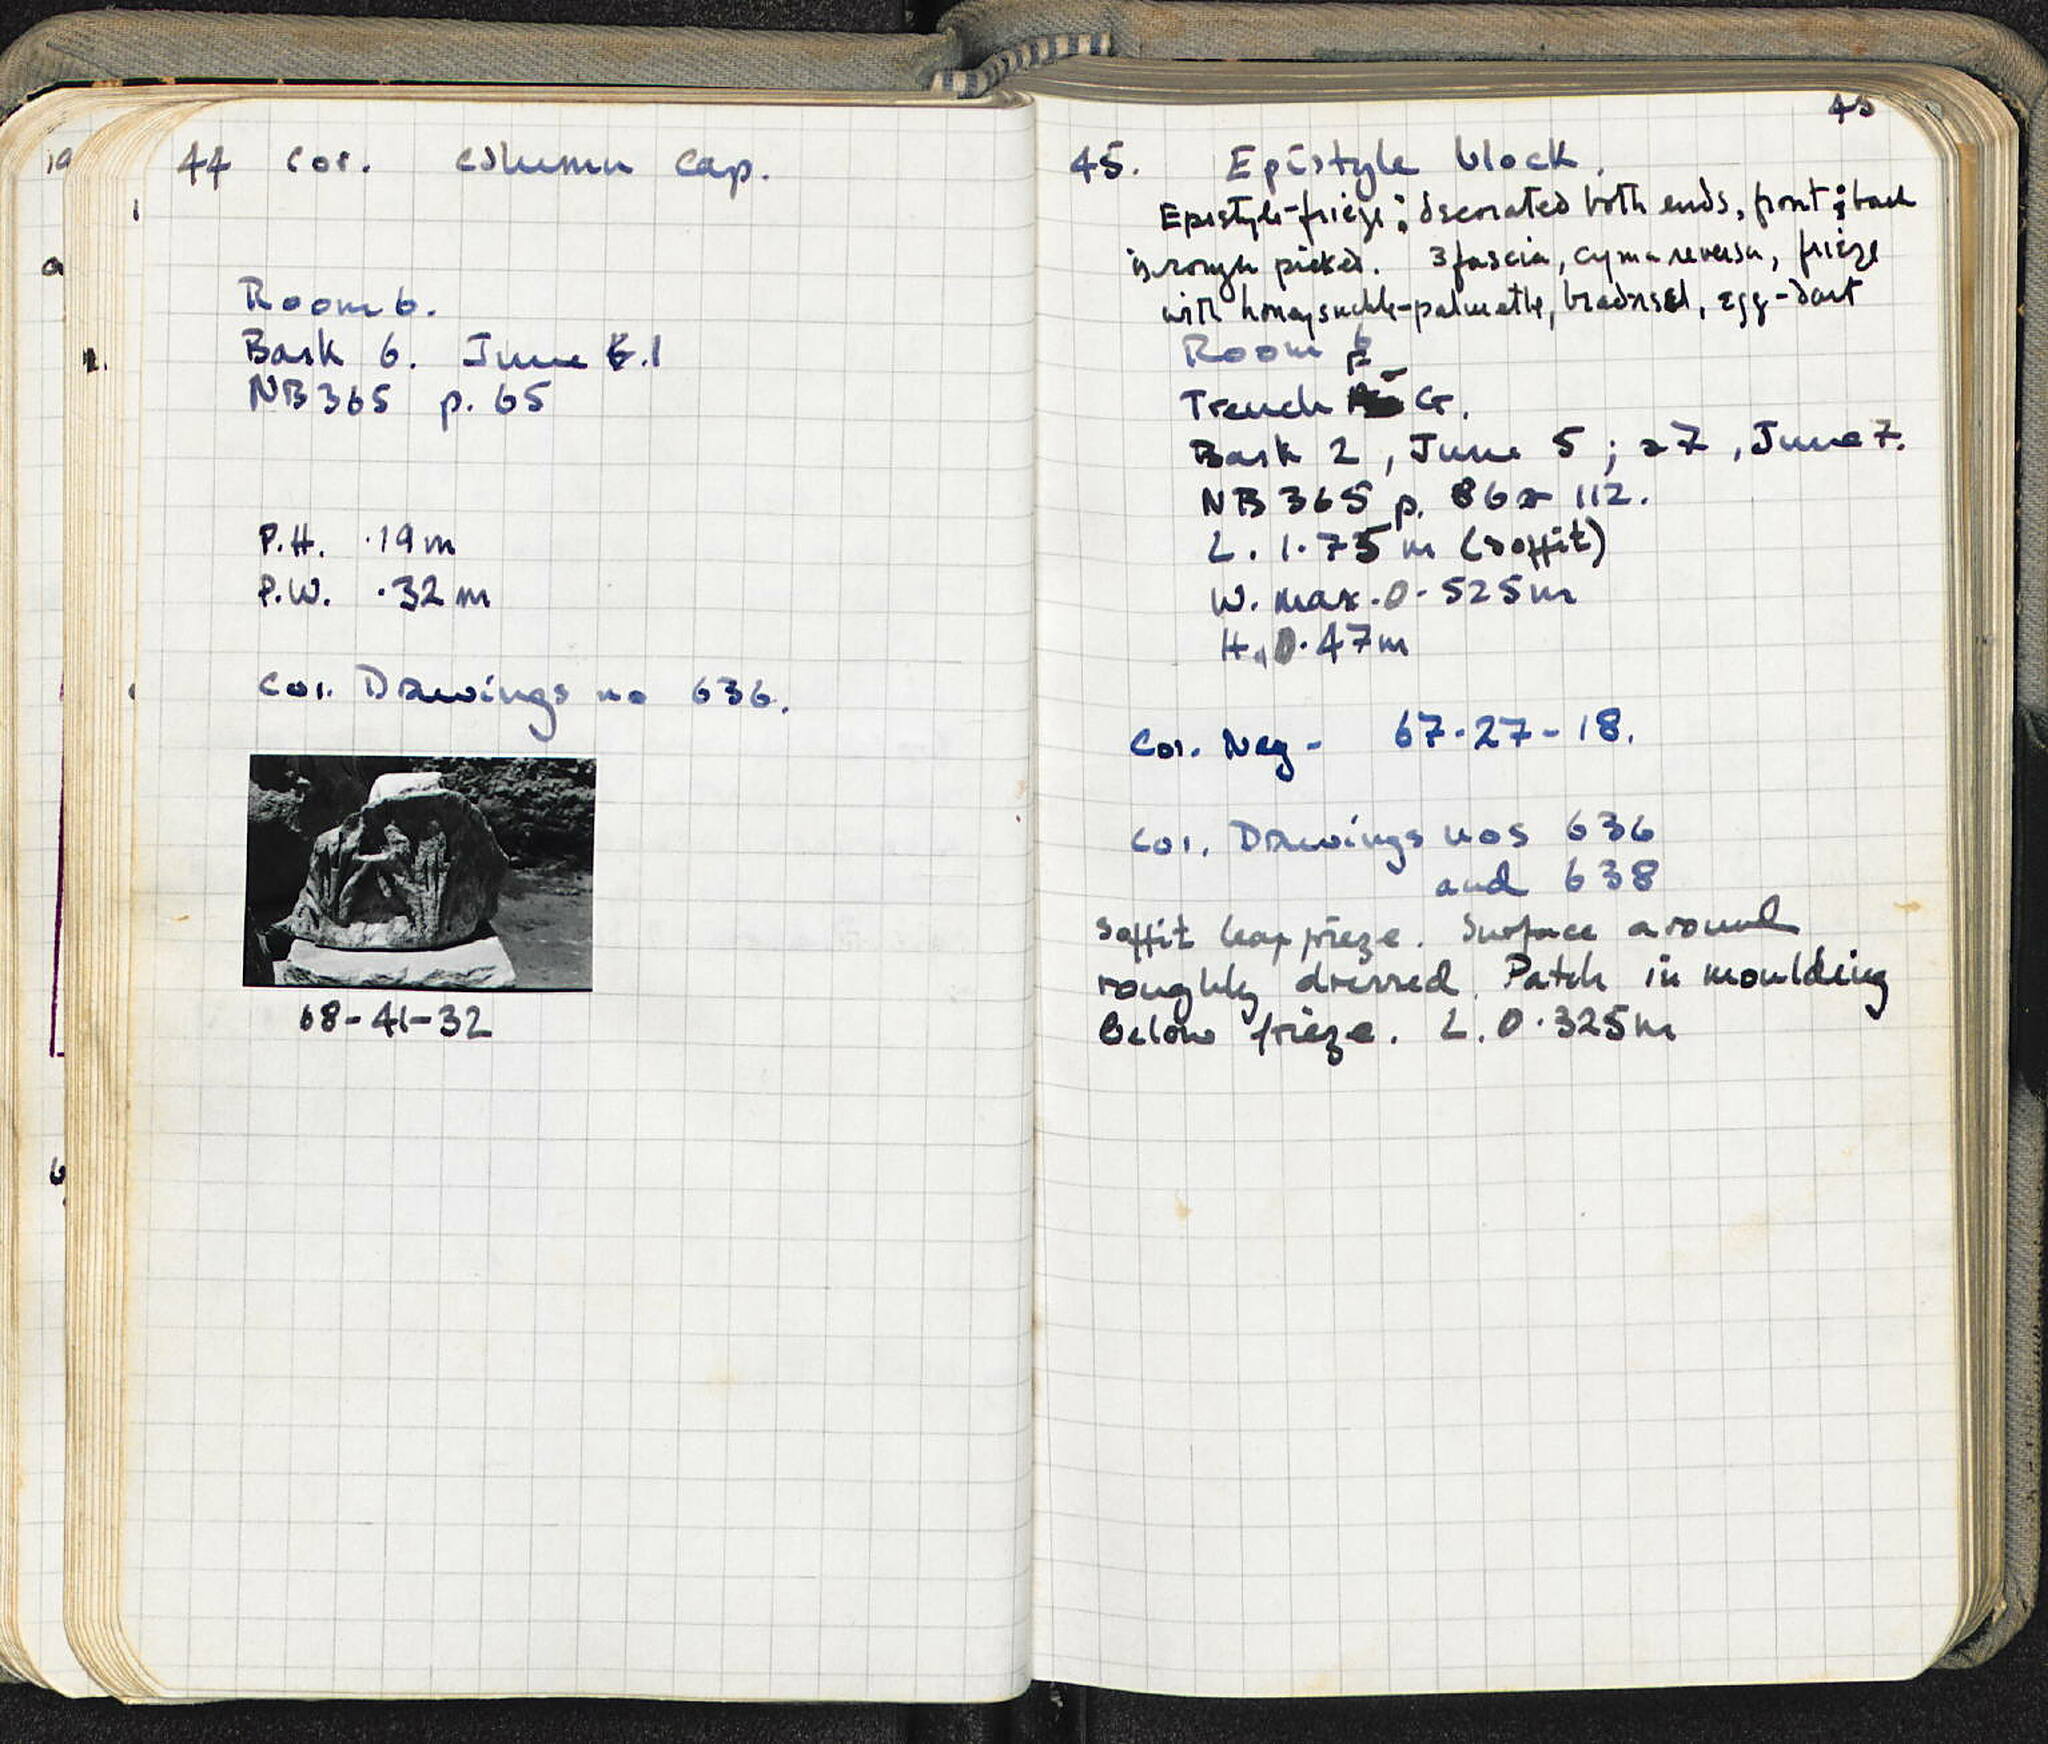 44 Cor. Column Cap.
Room 6.
Bask 6. June 1
NB 365 p. 65
P.H. .19m
P.W. .32m
Cor. Drawings no 636.
68-41-32
45
45. Epistyle block.
Epistyle-frieze; decorated both ends, front; back
is rough picked. 3 fascia, cyma reversa, frieze
with honeysuckle-palmette, , egg-dart
Room 6
Trench G.
Bask 2, June 5; 27, June 7.
NB 365 p. 86 112.
L. 1.75m (soffit)
W. max. 0.525m
H. 0.47m
Cor. Neg - 67-27-18.
Cor. Drawings nos 636
and 638
Soffit leaf frieze. Surface around
roughly dressed. Patch in moulding
below frieze. L. 0.325m